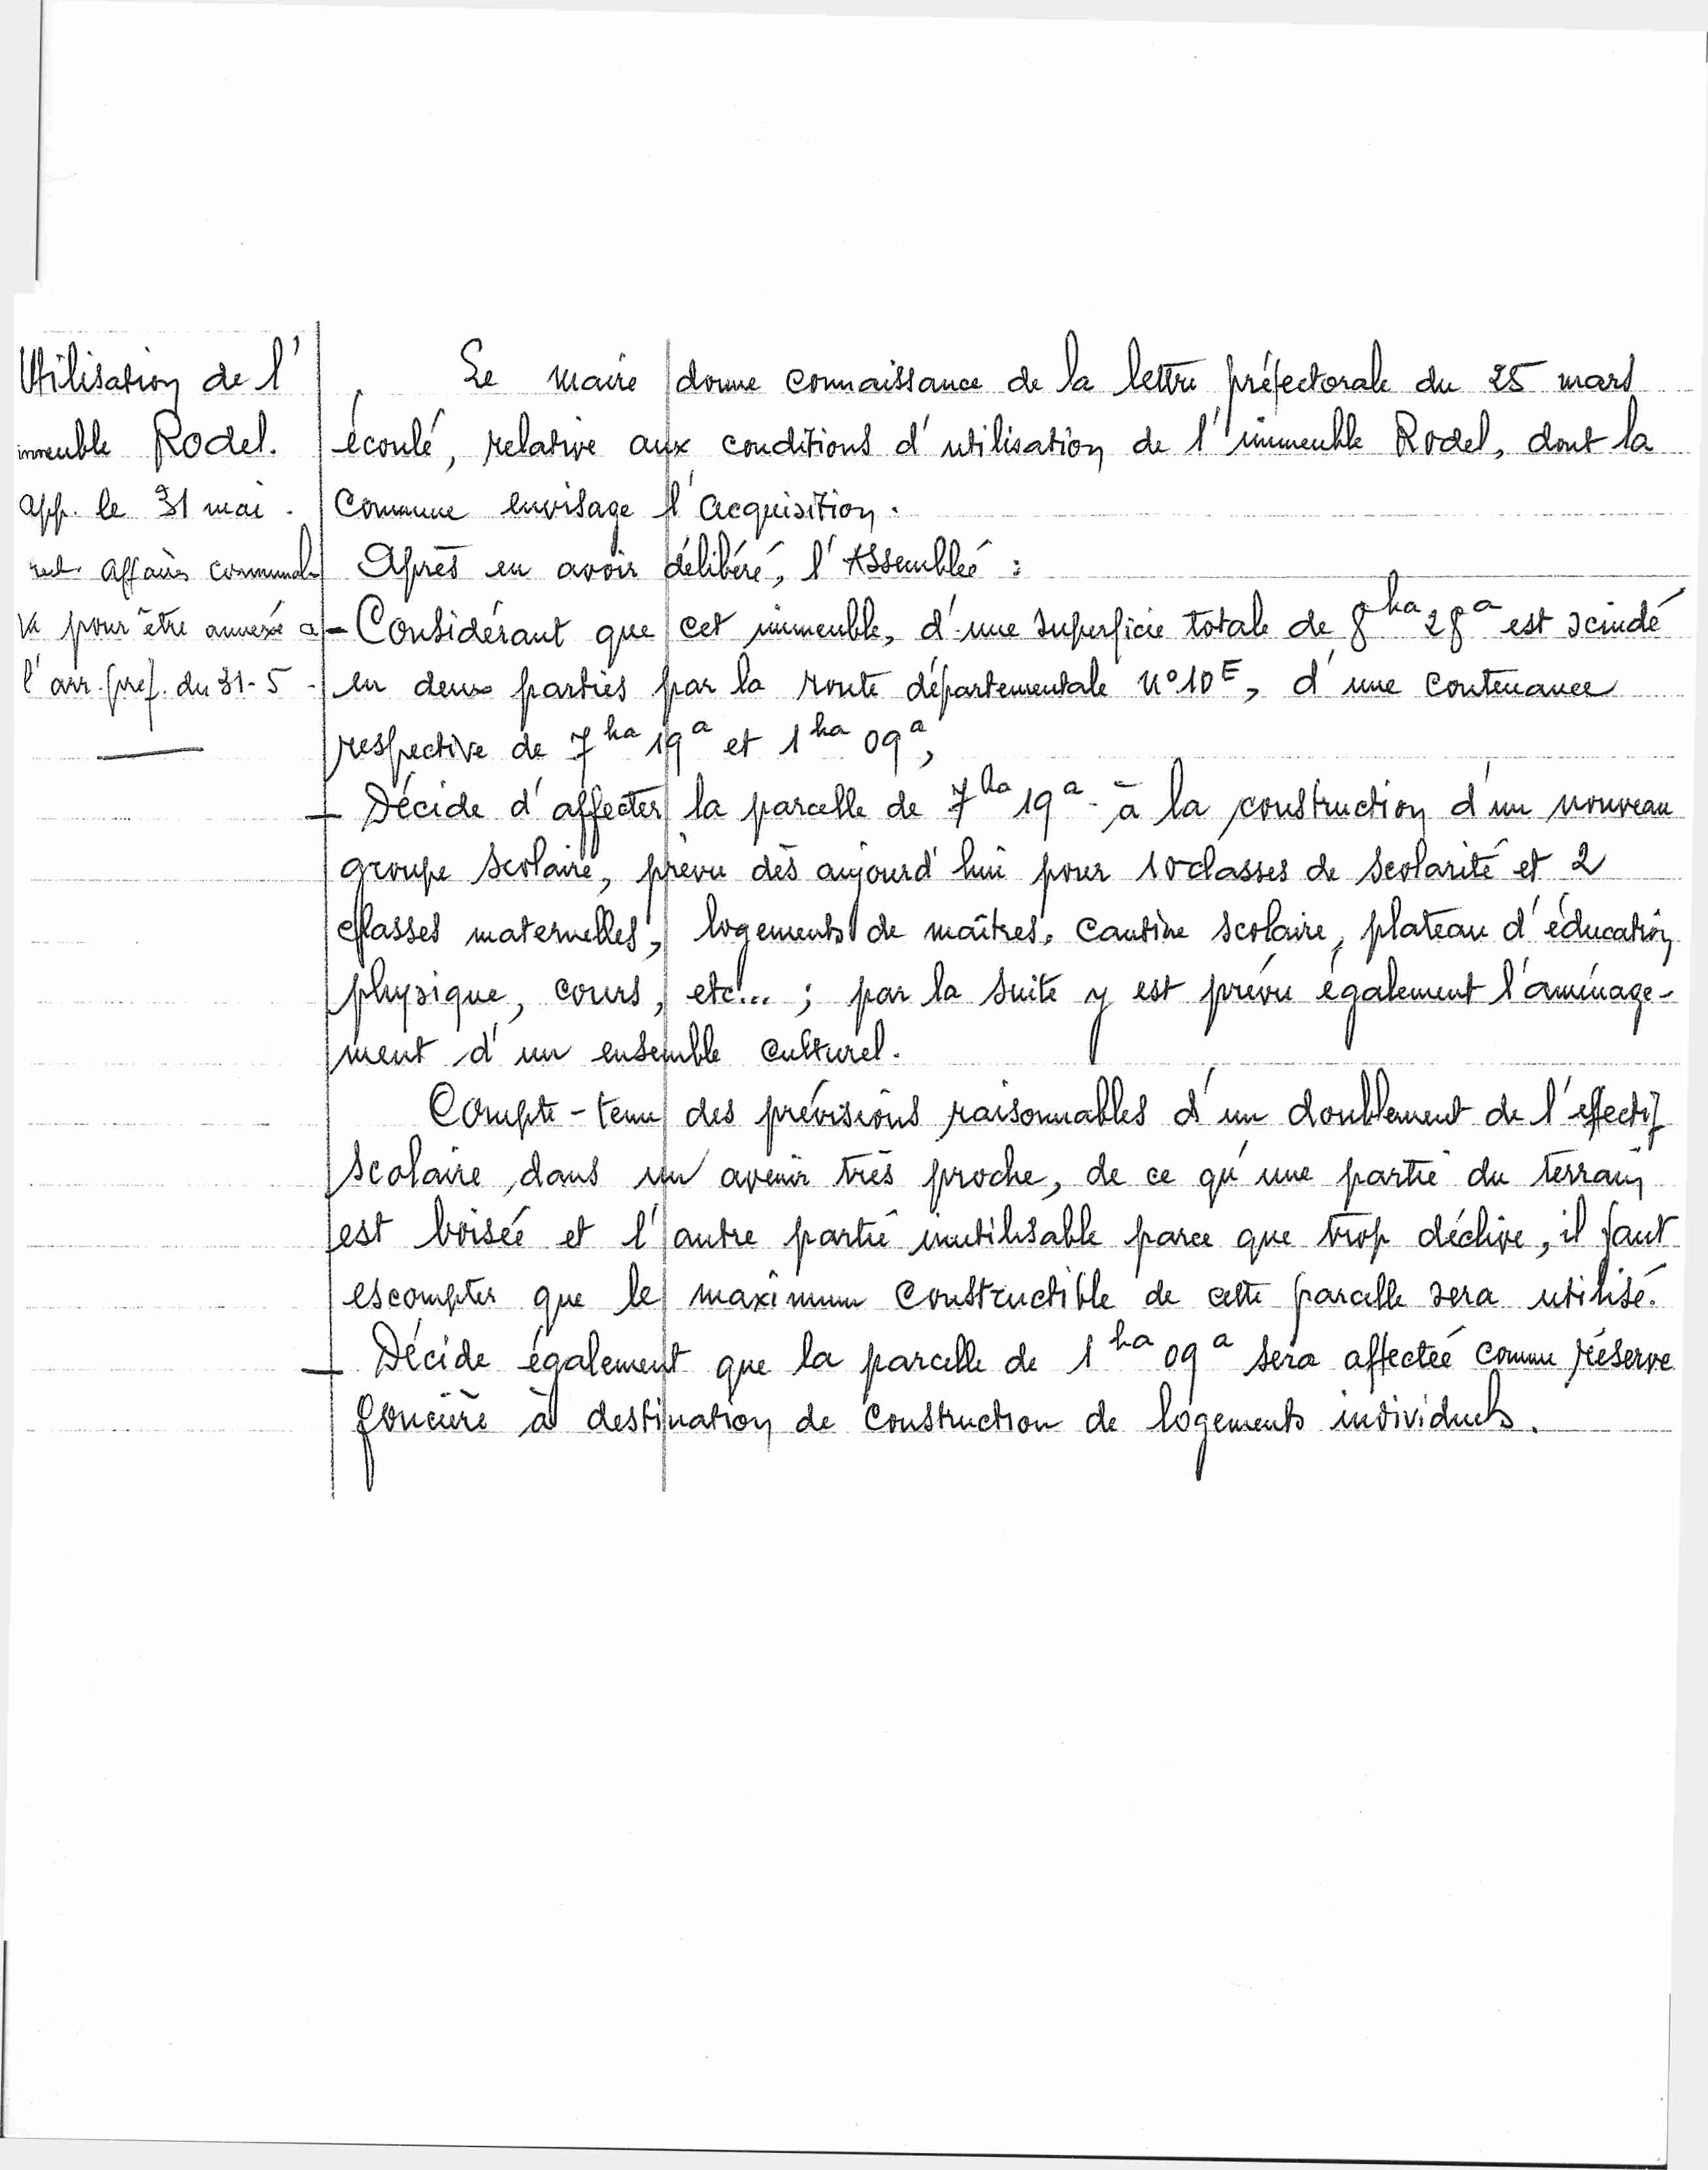 Utilisation de l'
immeuble Rodel.
app. le 31 mai.
affaires communales
Vu pour être annexé à
l'arr. préf. du 31-5-
Le maire donne connaissance de la lettre préfectorale du 25 mars
écoulé, relative aux conditions d'utilisation de l'immeuble Rodel, dont la
Commune envisage l'acquisition.
Après en avoir délibéré, l'Assemblée :
- Considérant que cet immeuble, d'une superficie totale de 8 ha 28 a est scindé
en deux parties par la route départementale n° 10 E, d'une contenance
respective de 7 ha 19 a et 1 ha 09 a,
- Décide d'affecter la parcelle de 7 ha 19 a - à la construction d'un nouveau
groupe scolaire, prévu dès aujourd'hui pour 10 classes de scolarité et 2
classes maternelles, logements de maîtres, cantine scolaire, plateau d'éducation
physique, cours, etc... ; par la suite y est prévu également l'aménage-
ment d'un ensemble culturel.
Compte-tenu des prévisions raisonnables d'un doublement de l'effectif
scolaire, dans un avenir très proche, de ce qu'une partie du terrain
est boisée et l'autre partie inutilisable parce que trop déclive, il faut
escompter que le maximum constructible de cette parcelle sera utilisé.
- Décide également que la parcelle de 1 ha 09 a sera affectée comme réserve
foncière à destination de construction de logements individuels.